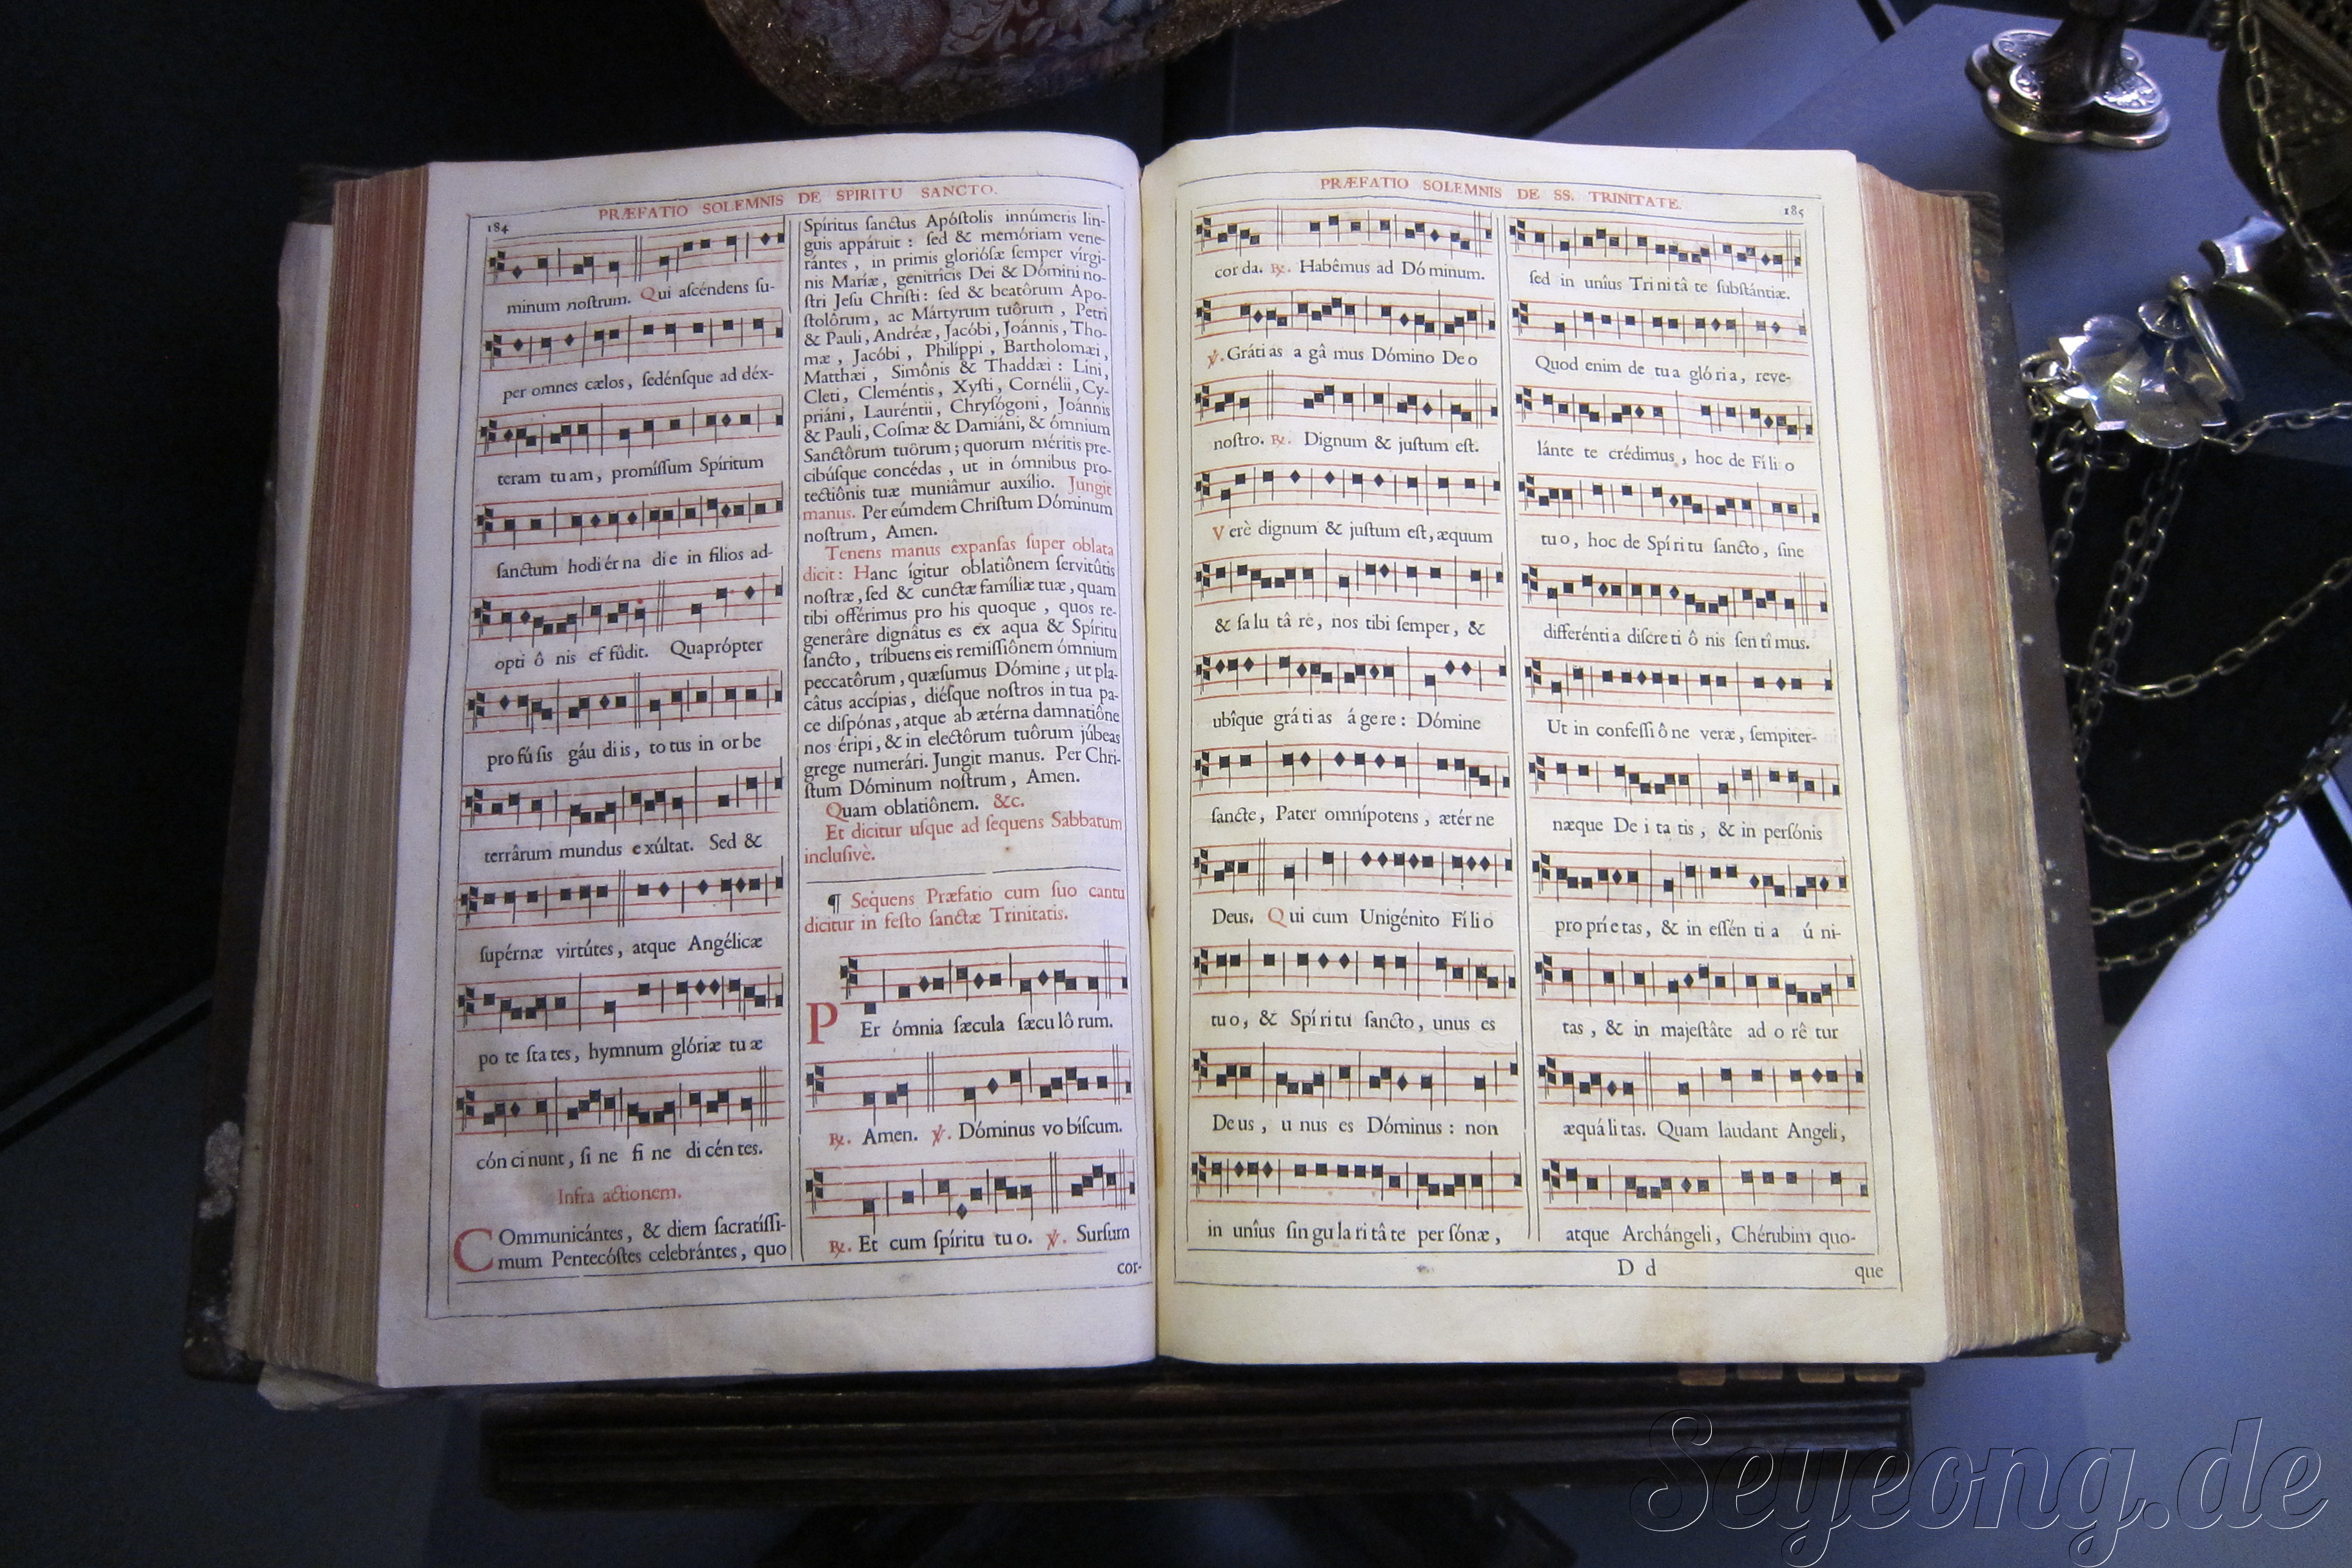 PRÆFATIO SOLEMNIS DE SPIRITU SANCTO.
184
minum nostrum. Qui aſcéndens ſu-
per omnes cælos, ſedénſque ad déx-
teram tu am, promíſſum Spíritum
ſanctum hodi ér na di e in filios ad-
opti ô nis ef fûdit. Quaprópter
pro fú ſis gáu di is, to tus in or be
terrârum mundus e xúltat. Sed &
ſupérnæ virtútes, atque Angélicæ
po te ſta tes, hymnum glóriæ tu æ
cón ci nunt, ſi ne fi ne di cén tes.
Infra actionem.
COmmunicántes, & diem ſacratíſſi-
mum Pentecóſtes celebrántes, quo
Spíritus ſanctus Apóſtolis innúmeris lin-
guis appáruit : ſed & memóriam vene-
rántes, in primis glorióſæ ſemper vírgi-
nis Maríæ, genitrîcis Dei & Dómini no-
ſtri Jeſu Chriſti : ſed & beatôrum Apo-
ſtolôrum, ac Mártyrum tuôrum, Petri
& Pauli, Andréæ, Jacóbi, Joánnis, Tho-
mæ, Jacóbi, Philíppi, Bartholomæi,
Matthæi, Simônis & Thaddæi : Lini,
Cleti, Cleméntis, Xyſti, Cornélii, Cy-
priáni, Lauréntii, Chryſógoni, Joánnis
& Pauli, Coſmæ & Damiáni, & ómnium
Sanctôrum tuôrum ; quorum méritis pre-
cibúſque concédas, ut in ómnibus pro-
tectiônis tuæ muniâmur auxílio. Jungit
manus. Per eúmdem Chriſtum Dóminum
noſtrum, Amen.
Tenens manus expanſas ſuper oblata
dicit : Hanc ígitur oblatiônem ſervitûtis
noſtræ, ſed & cunctæ famíliæ tuæ, quam
tibi offérimus pro his quoque, quos re-
generâre dignâtus es ex aqua & Spíritu
ſancto, tríbuens eis remiſſiônem ómnium
peccatôrum, quæſumus Dómine, ut pla-
câtus accípias, diéſque noſtros in tua pa-
ce diſpónas, atque ab ætérna damnatiône
nos éripi, & in electôrum tuôrum júbeas
grege numerári. Jungit manus. Per Chri-
ſtum Dóminum noſtrum, Amen.
Quam oblatiônem. &c.
Et dicitur uſque ad ſequens Sabbatum
incluſivè.
¶ Sequens Præfatio cum ſuo cantu
dicitur in feſto ſanctæ Trinitatis.
PEr ómnia ſæcula ſæcu lô rum.
℟. Amen. ℣. Dóminus vo bíſcum.
℟. Et cum ſpíritu tu o. ℣. Surſum
cor-
PRÆFATIO SOLEMNIS DE SS. TRINITATE.
185
cor da. ℟. Habêmus ad Dó minum.
℣. Gráti as a gâ mus Dómino De o
noſtro. ℟. Dignum & juſtum eſt.
Verè dignum & juſtum eſt, æquum
& ſa lu tâ re, nos tibi ſemper, &
ubîque grá ti as á ge re : Dómine
ſancte, Pater omnípotens, ætér ne
Deus. Qui cum Unigénito Fí li o
tu o, & Spí ri tu ſancto, unus es
De us, u nus es Dóminus : non
in unîus ſin gu la ri tâ te per ſónæ,
ſed in unîus Tri ni tâ te ſubſtántiæ.
Quod enim de tu a gló ri a, reve-
lánte te crédimus, hoc de Fí li o
tu o, hoc de Spí ri tu ſancto, ſine
differénti a diſcre ti ô nis ſen tî mus.
Ut in confeſſi ô ne veræ, ſempiter-
næque De i ta tis, & in perſónis
pro prí e tas, & in eſſén ti a ú ni-
tas, & in majeſtâte ad o rê tur
æquá li tas. Quam laudant Angeli,
atque Archángeli, Chérubim quo-
D d
que
Seyeong.de